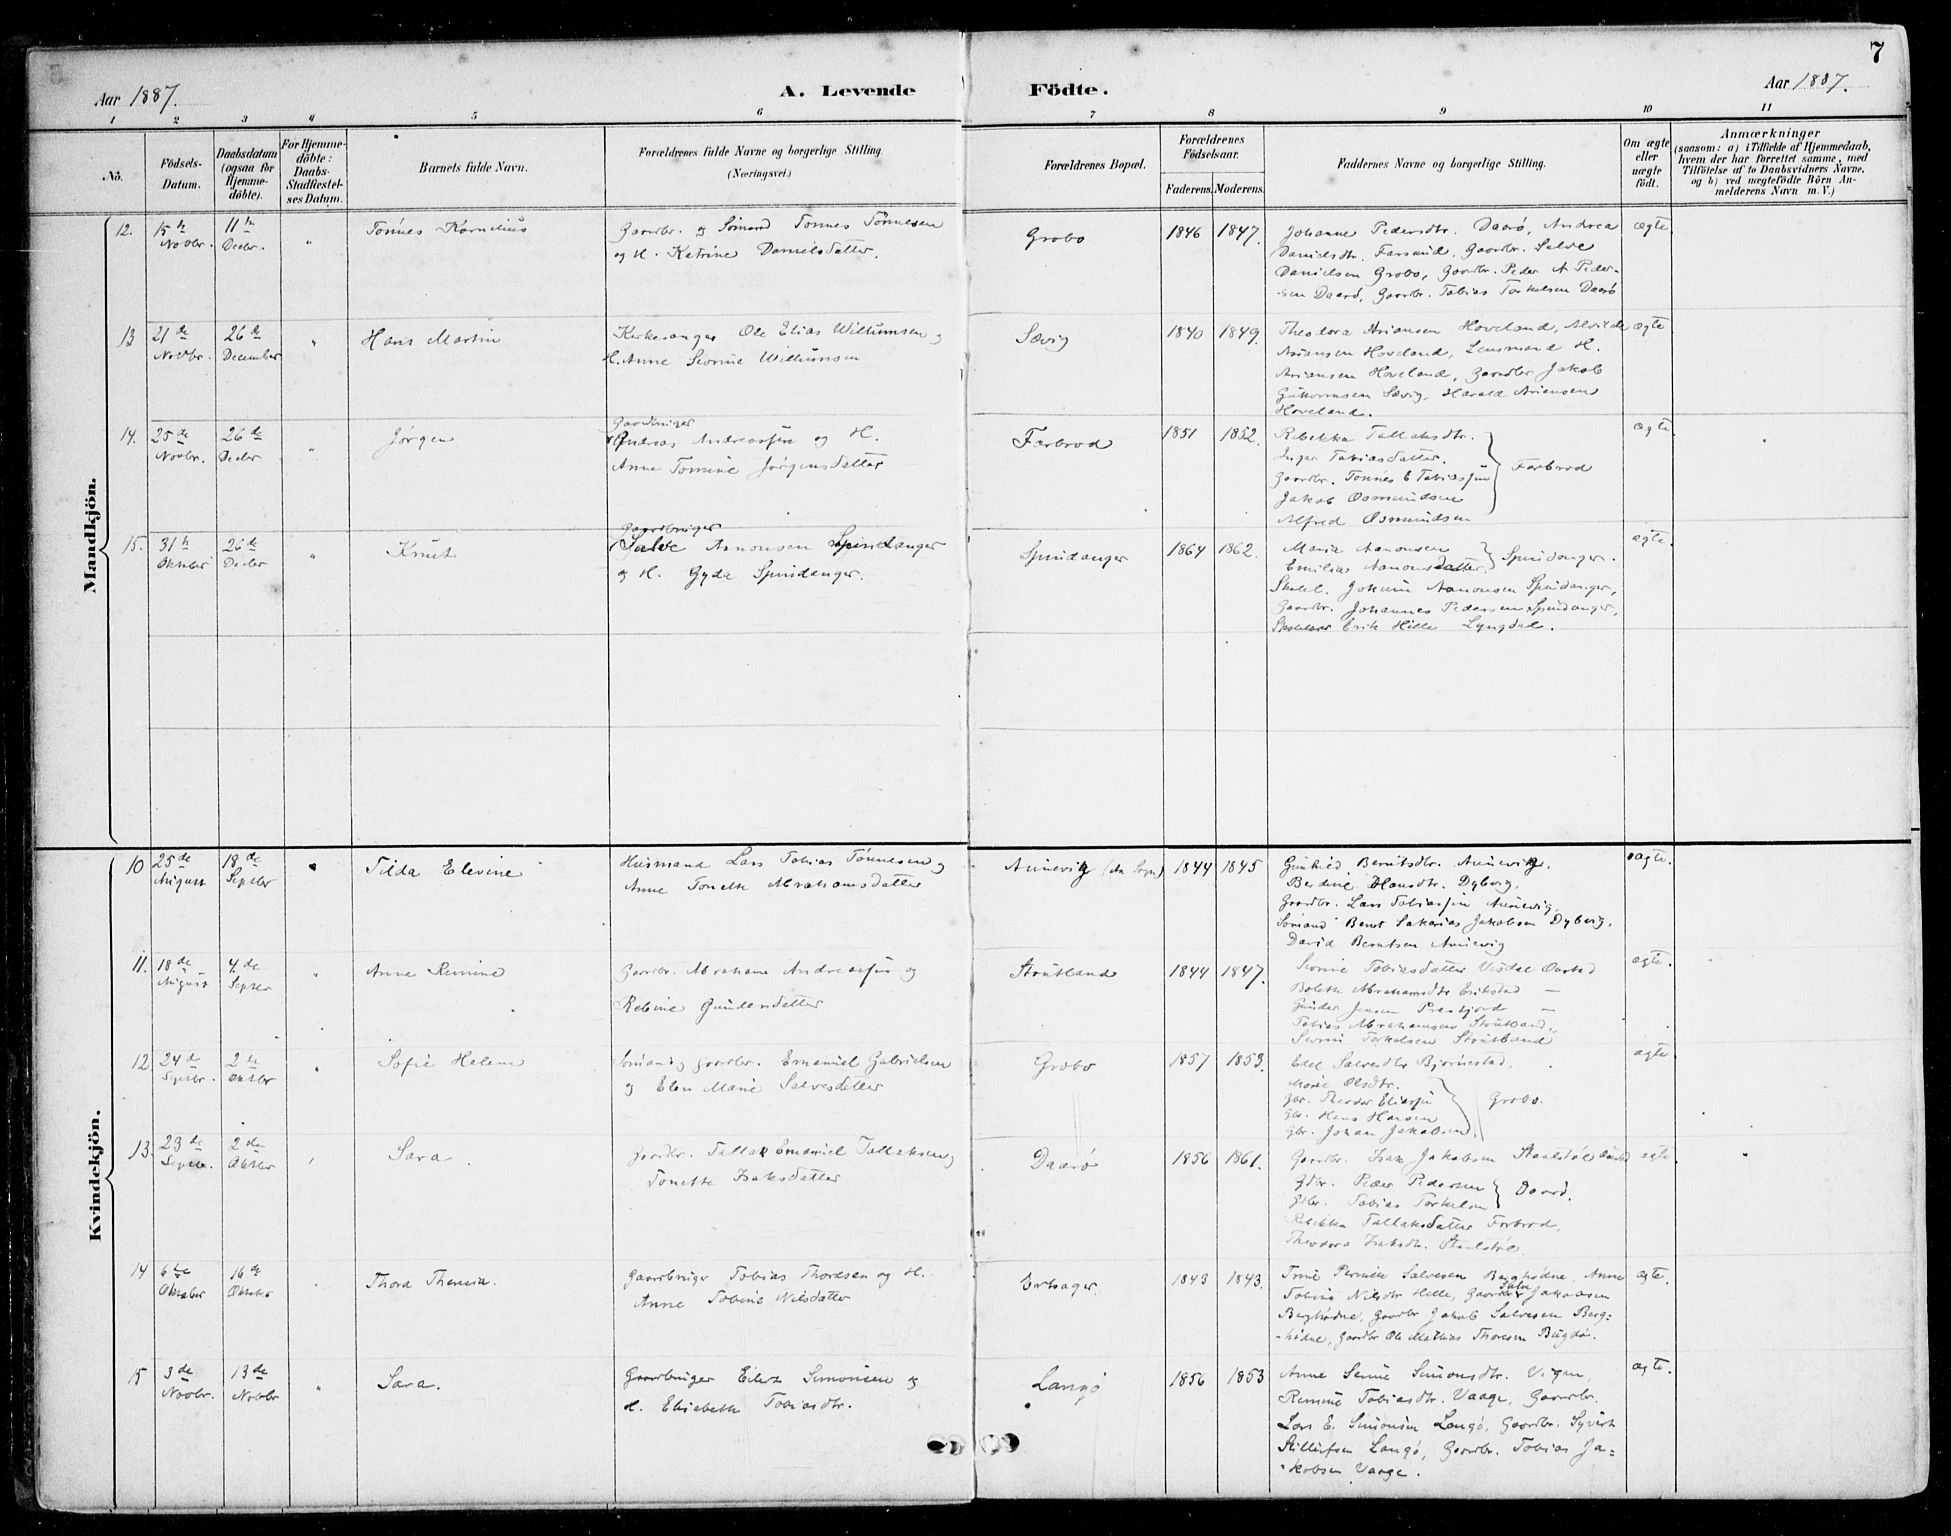 7
Aar 1887.
A. Levende Födte.
Aar 1887.
1 2 3 4 5 6 7 8 9 10 11
No.
Födsels-
Datum.
Daabsdatum
(ogsaa for
Hjemme-
döbte).
For Hjemme-
döbte:
Daabs-
Stadfæstel-
ses Datum.
Barnets fulde Navn.
Forældrenes fulde Navne og borgerlige Stilling.
(Næringsvei.)
Forældrenes Bopæl.
Forældrenes
Födselsaar.
Faderens. Moderens.
Faddernes Navne og borgerlige Stilling.
Om ægte
eller
uægte
født.
Anmærkninger
(saasom: a) i Tilfælde af Hjemmedaab,
hvem der har forrettet samme, med
Tilföielse af to Daabsvidners Navne,
og b) ved uægtefödte Börn An-
melderens Navn m. V.)
Mandkjön.
12. 15 Novbr. 11 Decbr. " Tönnes Kornelius
Gaardbr. og Sömand Tönnes Tönnesen
og H. Katrine Danielsdatter.
Grobo 1846 1847.
Johanne Pedersdtr. Daarö, Andrea
Danielsdtr. Farsund, Gaardbr. Salve
Danielsen Grobo, Gaardbr. Peder A Peder-
sen Daarö, Gaardbr. Tobias Torkelsen Daarö
ægte
13 21de Novbr. 26de December " Hans Martin
Kirkesanger Ole Elias Willumsen og
H. Anne Severine Willumsen
Sævig 1840 1849.
Theodora Ariansen Hoveland, Alvilde
Ariansen Hoveland, Lensmand H.
Ariansen Hoveland, Gaardbr Jakob
Guttormsen Sævig, Harald Ariansen
Hoveland.
ægte
14. 25de Novbr. 26de Decbr " Jørgen
Gaardbruger
Andreas Andreassen og H.
Anne Tomine Jørgensdatter
Farbrod 1851 1852.
Rebekka Tallaksdtr.
Inger Tobiasdatter.
Gaardbr. Tönnes E Tobiassen
Jakob Osmundsen
Alfred Osmundsen
Farbrod
ægte
15. 31 Oktober 26de Decbr " Knut
Gaardbruger
Salve Aanonsen Spindanger
og H. Gyda Spindanger.
Spindanger 1864 1862.
Marie Aanonsen
Emilie Aanonsdatter
Spindanger.
Skolel. Jokum Aanonsen Spindanger,
Gaardbr. Johannes Pedersen Spindanger,
Erik Hille Lyngdal.
ægte
Kvindekjön.
10 25de August 18de Septbr Tilda Elevine
Husmand Lars Tobias Tönnesen og
Anne Tonette Abrahamsdatter
1844 1845
Gunhild Berntsdtr.
Berdine Hansdtr. Dybvig,
Gaardbr. Lars Tobiassen
Sömand Bernt Sakarias Jakobsen Dybvig,
David Berntsen
ægte.
11. 18de August 4.de Septbr " Anne Remine
Gaardbr. Abraham Andreassen og
Rebine Gundersdatter
Strutland 1844 1847.
Tobiasdatter
Bolette Abrahamsdtr Eikstad —
Gunder Jensen —
Tobias Abrahamsen Strutland,
Torkelsen Strutland
ægte.
12. 24de Septbr. 2de Oktbr " Sofie Helene
Sömand & Gaardbr. Emanuel Gabrielsen
og Elen Marie Salvesdatter
Grobo 1857 1853.
Edel Salvesdtr Bjørnestad,
Marie Olsdtr.
Gbr. Theodor Eliassen
Gbr. Hans Hansen
Gbr. Johan Jakobsen.
Grobo.
ægte
13. 23de Septbr. 2de Oktbr Sara
Gaardbr. Tallak Emanuel Tallaksen og
Tonette Isaksdatter
Daarö 1856 1861.
Gaardbr. Isak Jakobsen Staalstöl
Gdbr. Peder Pedersen
Gdbr. Tobias Torkelsen
Daarö.
Rebekka Tallaksdatter Farbrod,
Theodora Isaksdtr. Staalstöl.
ægte
14 6te Oktober 16de Oktober Thora
Gaardbruger Tobias Thoresen og H.
Anne Tobine Nilsdatter
Ersager 1843 1843.
Salvesen Berghødne, Anne
Tobine Nilsdtr Hille, Gaardbr Salve Jakobsen
Berghødne, Gaardbr Jakob Salvesen Berg-
-hødne, Gaardbr Ole Mathias Thoresen Bugdøi.
ægte.
15 3de Novbr. 13de Novbr " Sara.
Gaardbruger Eilert Simonsen og
H. Elisabeth Tobiasdtr.
Langö 1856 1853
Anne Simonsdtr. Vigan,
Remine Tobiasdtr. Vaage, Gaardbr.
Lars E. Simonsen Langö, Gaardbr. Syvert
Langö, Gaardbr. Tobias Ja-
-kobsen Vaage.
ægte.